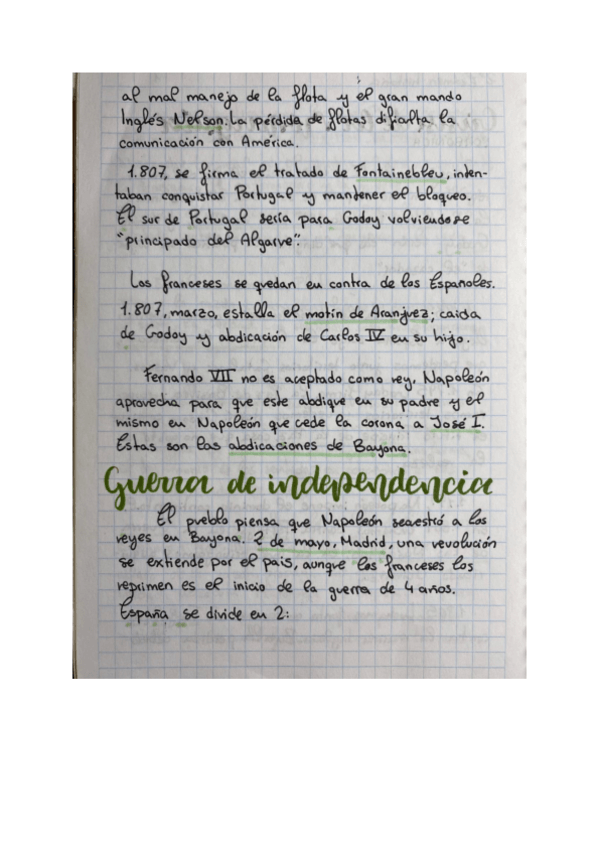 al mal manejo de la flota y el gran mando
Inglés Nelson. La pérdida de flotas difiarlta la
comunicación con América.
1.807, se firma el tratado de Fontainebleu, inten-
taban conquistar Portugal y mantener el bloqueo.
El sur de Portugal sería para Godoy volviendose
"principado del Algarve".
Los franceses se quedan en contra de los Españoles.
1.807, marzo, estalla el motín de Aranjuez; caida
de Godoy y abdicación de Carlos IV en su hijo.
Fernando VII no es aceptado como rey, Napoleón
aprovecha para que este abdique en su padre y el
mismo en Napoleón que cede la corona a José I.
Estas son las abdicaciones de Bayona.
Guerra de independencia
El pueblo piensa que Napoleón secuestró a los
reyes en Bayona. 2 de mayo, Madrid, una revolución
se extiende por el país, aunque los franceses los
reprimen es el inicio de la guerra de 4 años.
España se divide en 2: